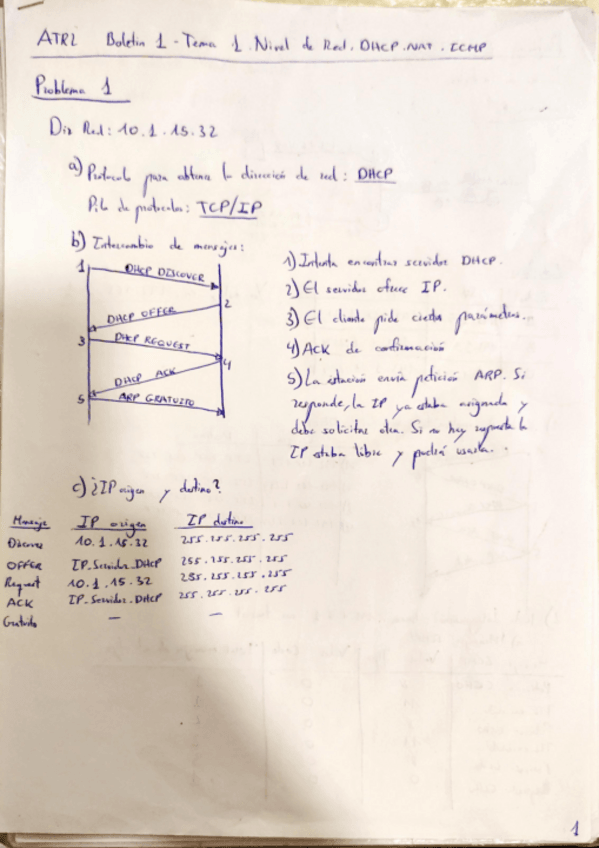 ATRL Boletín 1 - Tema 1. Nivel de Red. DHCP. NAT. ICMP
Problema 1
Dir Red: 10.1.15.32
a) Protocolo para obtener la dirección de red: DHCP
Pila de protocolos: TCP/IP
b) Intercambio de mensajes:
1 DHCP DISCOVER
DHCP OFFER 2
3 DHCP REQUEST
DHCP ACK 4
5 ARP GRATUITO
1) Intenta encontrar servidor DHCP.
2) El servidor ofrece IP.
3) El cliente pide ciertos parámetros.
4) ACK de confirmación
5) La estación envía petición ARP. Si
responde, la IP ya estaba asignada y
debe solicitar otra. Si no hay respuesta la
IP estaba libre y podrá usarla.
c) ¿IP origen y destino?
Mensaje IP origen IP destino
Discover 10.1.15.32 255.255.255.255
OFFER IP.Servidor.DHCP 255.255.255.255
Request 10.1.15.32 255.255.255.255
ACK IP.Servidor.DHCP 255.255.255.255
Gratuito — —
1